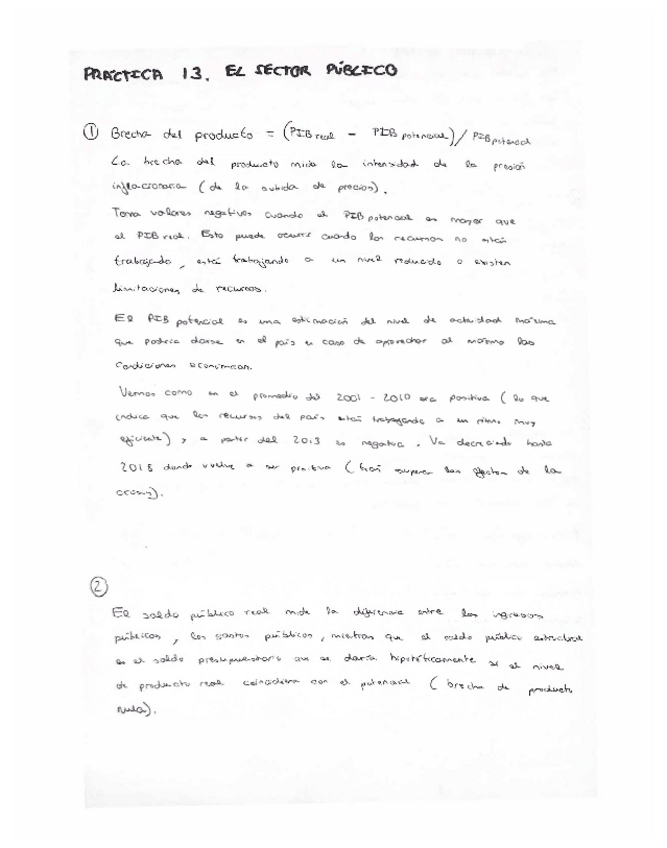 PRÁCTICA 13. EL SECTOR PÚBLICO
① Brecha del producto = (PIB real - PIB potencial) / PIB potencial
La brecha del producto mide la intensidad de la presión
inflacionaria (de la subida de precios).
Toma valores negativos cuando el PIB potencial es mayor que
el PIB real. Esto puede ocurrir cuando los recursos no están
trabajando, está trabajando a un nivel reducido o existen
limitaciones de recursos.
El PIB potencial es una estimación del nivel de actividad máxima
que podría darse en el país en caso de aprovechar al máximo las
condiciones económicas.
Vemos como en el promedio del 2001 - 2010 era positiva (lo que
indica que los recursos del país están trabajando a un ritmo muy
eficiente) y a partir del 2013 es negativa. Va decreciendo hasta
2018 donde vuelve a ser positiva (tras superar los efectos de la
crisis).
②
El saldo público real mide la diferencia entre los ingresos
públicos y los gastos públicos, mientras que el saldo público estructural
es el saldo presupuestario que se daría hipotéticamente si el nivel
de producto real coincidiera con el potencial (brecha de producto
nula).